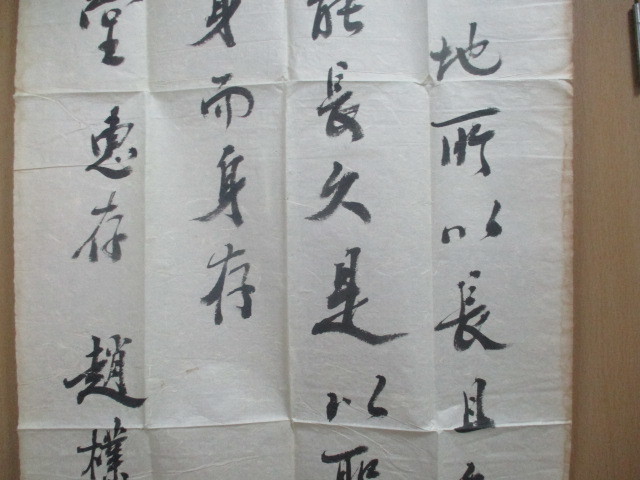 地所以長且
能長久是以
身而身存
堂惠存 趙樸